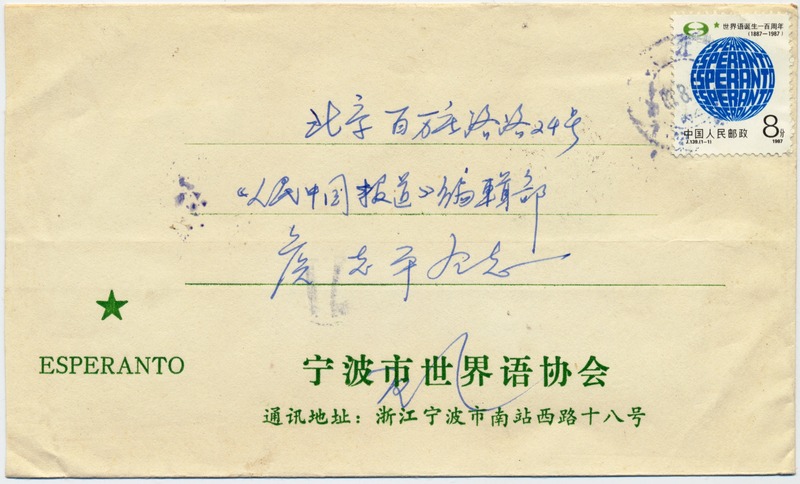 世界语诞生一百周年
(1887—1987)
ESPERANTO
ESPERANTO
ESPERANTO
中国人民邮政 8分
J.139.(1-1) 1987
北京百万庄路24号
《人民中国报道》编輯部
侯志平同志
ESPERANTO
宁波市世界语协会
通讯地址：浙江宁波市南站西路十八号